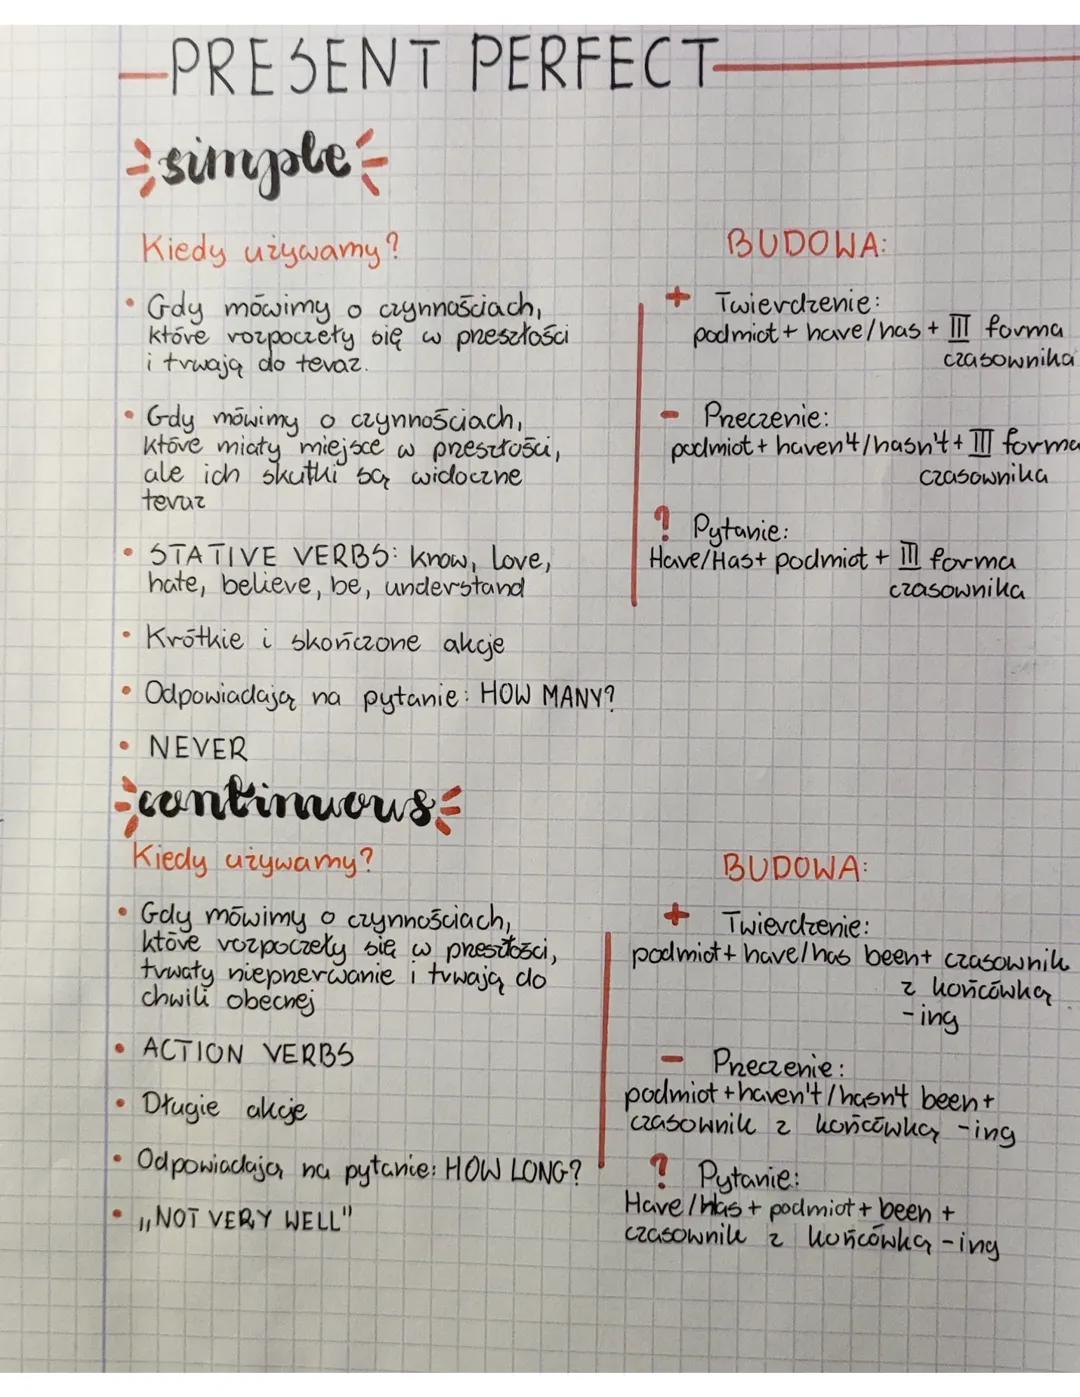 PRESENT PERFECT
simple
Kiedy używamy?
• Gdy mówimy o czynnościach,
które rozpoczeły się w preszłości
i trwają do teraz.
• Gdy mówimy o czynnościach,
które miały miejsce w przeszłości,
ale ich skutki są widoczne
teraz
• STATIVE VERBS: know, love,
hate, believe, be, understand
• Krótkie i skończone akcje
• Odpowiadają na pytanie: HOW MANY?
• NEVER
BUDOWA:
+ Twierdzenie:
podmiot + have/has + III forma
czasownika
- Przeczenie:
podmiot + haven't/hasn't + III forma
czasownika
? Pytanie:
Have/Has + podmiot + III forma
czasownika
continuous
Kiedy używamy?
• Gdy mówimy o czynnościach,
które rozpoczeły się w przeszłości,
trwały nieprzerwanie i trwają do
chwili obecnej
• ACTION VERBS
• Długie akcje
• Odpowiadają na pytanie: HOW LONG?
• „NOT VERY WELL"
BUDOWA:
+ Twierdzenie:
podmiot + have/has been + czasownik
z końcówką
-ing
- Przeczenie:
podmiot + haven't/hasn't been +
czasownik z końcówką -ing
? Pytanie:
Have/Has + podmiot + been +
czasownik z końcówką -ing